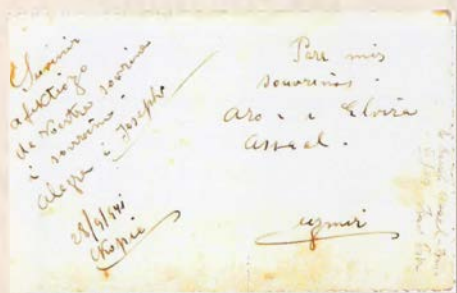 Suvenir
afektiozo
de Vuestra sovrina
i sovrino
Alegre i Joseph
28/9/941
Skopie
Para mis
souvrinos
Aro i Elvira
Assael.
Izmir